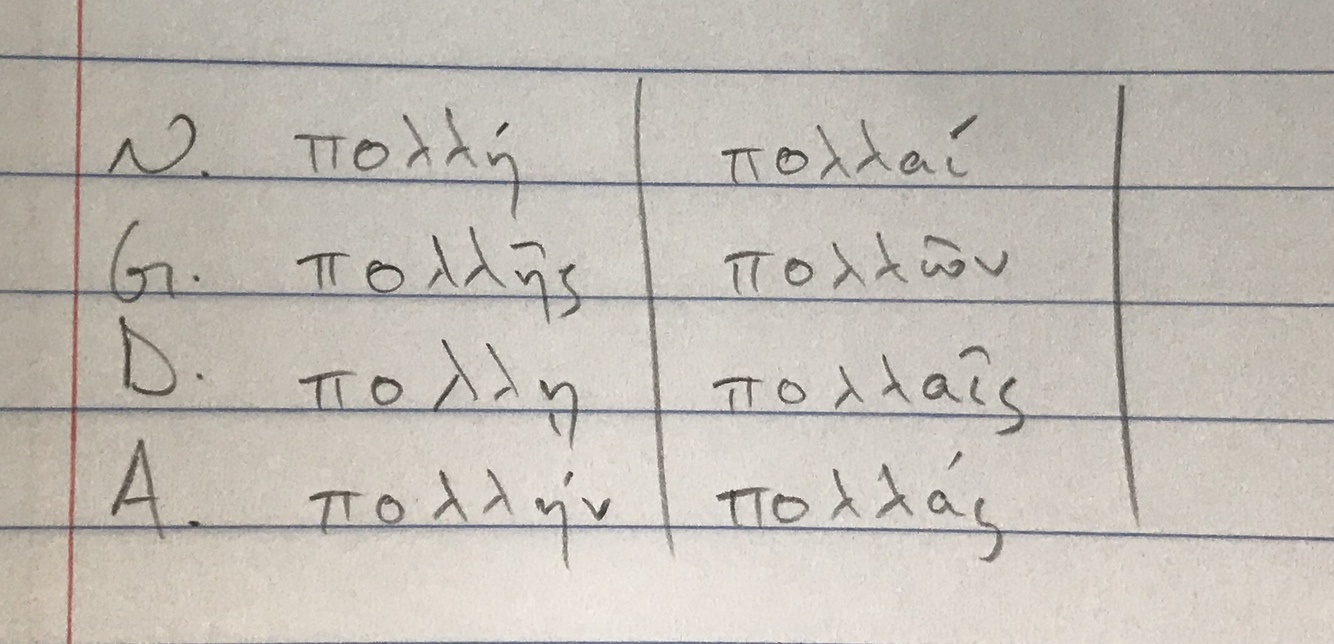 N. πολλή πολλαί
G. πολλῆς πολλῶν
D. πολλῃ πολλαῖς
A. πολλήν πολλάς